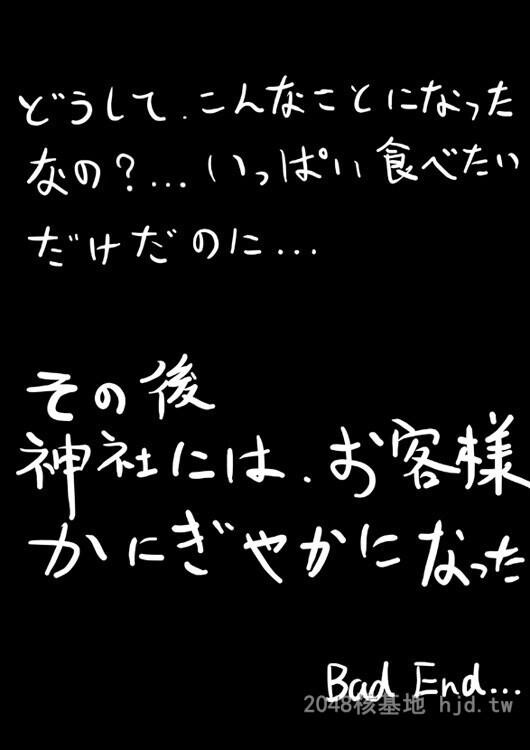 どうして.こんなことになった
なの?...いっぱい食べたい
だけだのに...
その後
神社には.お客様
かにぎやかになった
Bad End...
2048核基地 hjd.tw